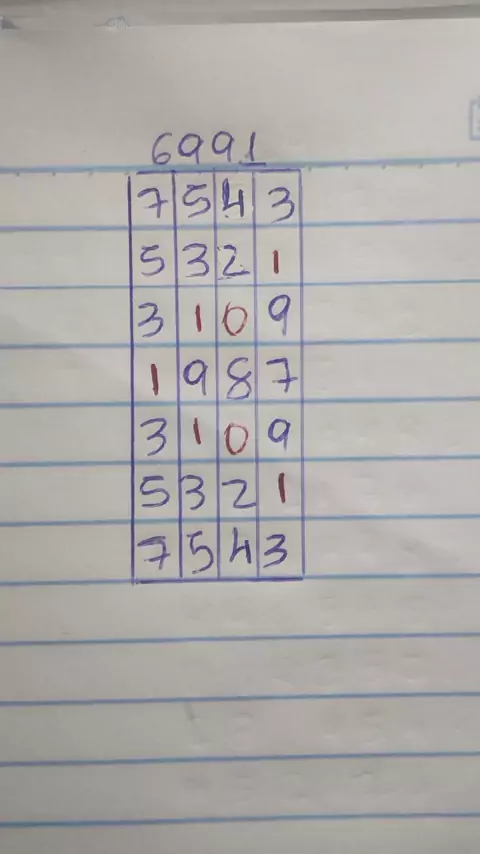 6991
7 5 4 3
5 3 2 1
3 1 0 9
1 9 8 7
3 1 0 9
5 3 2 1
7 5 4 3